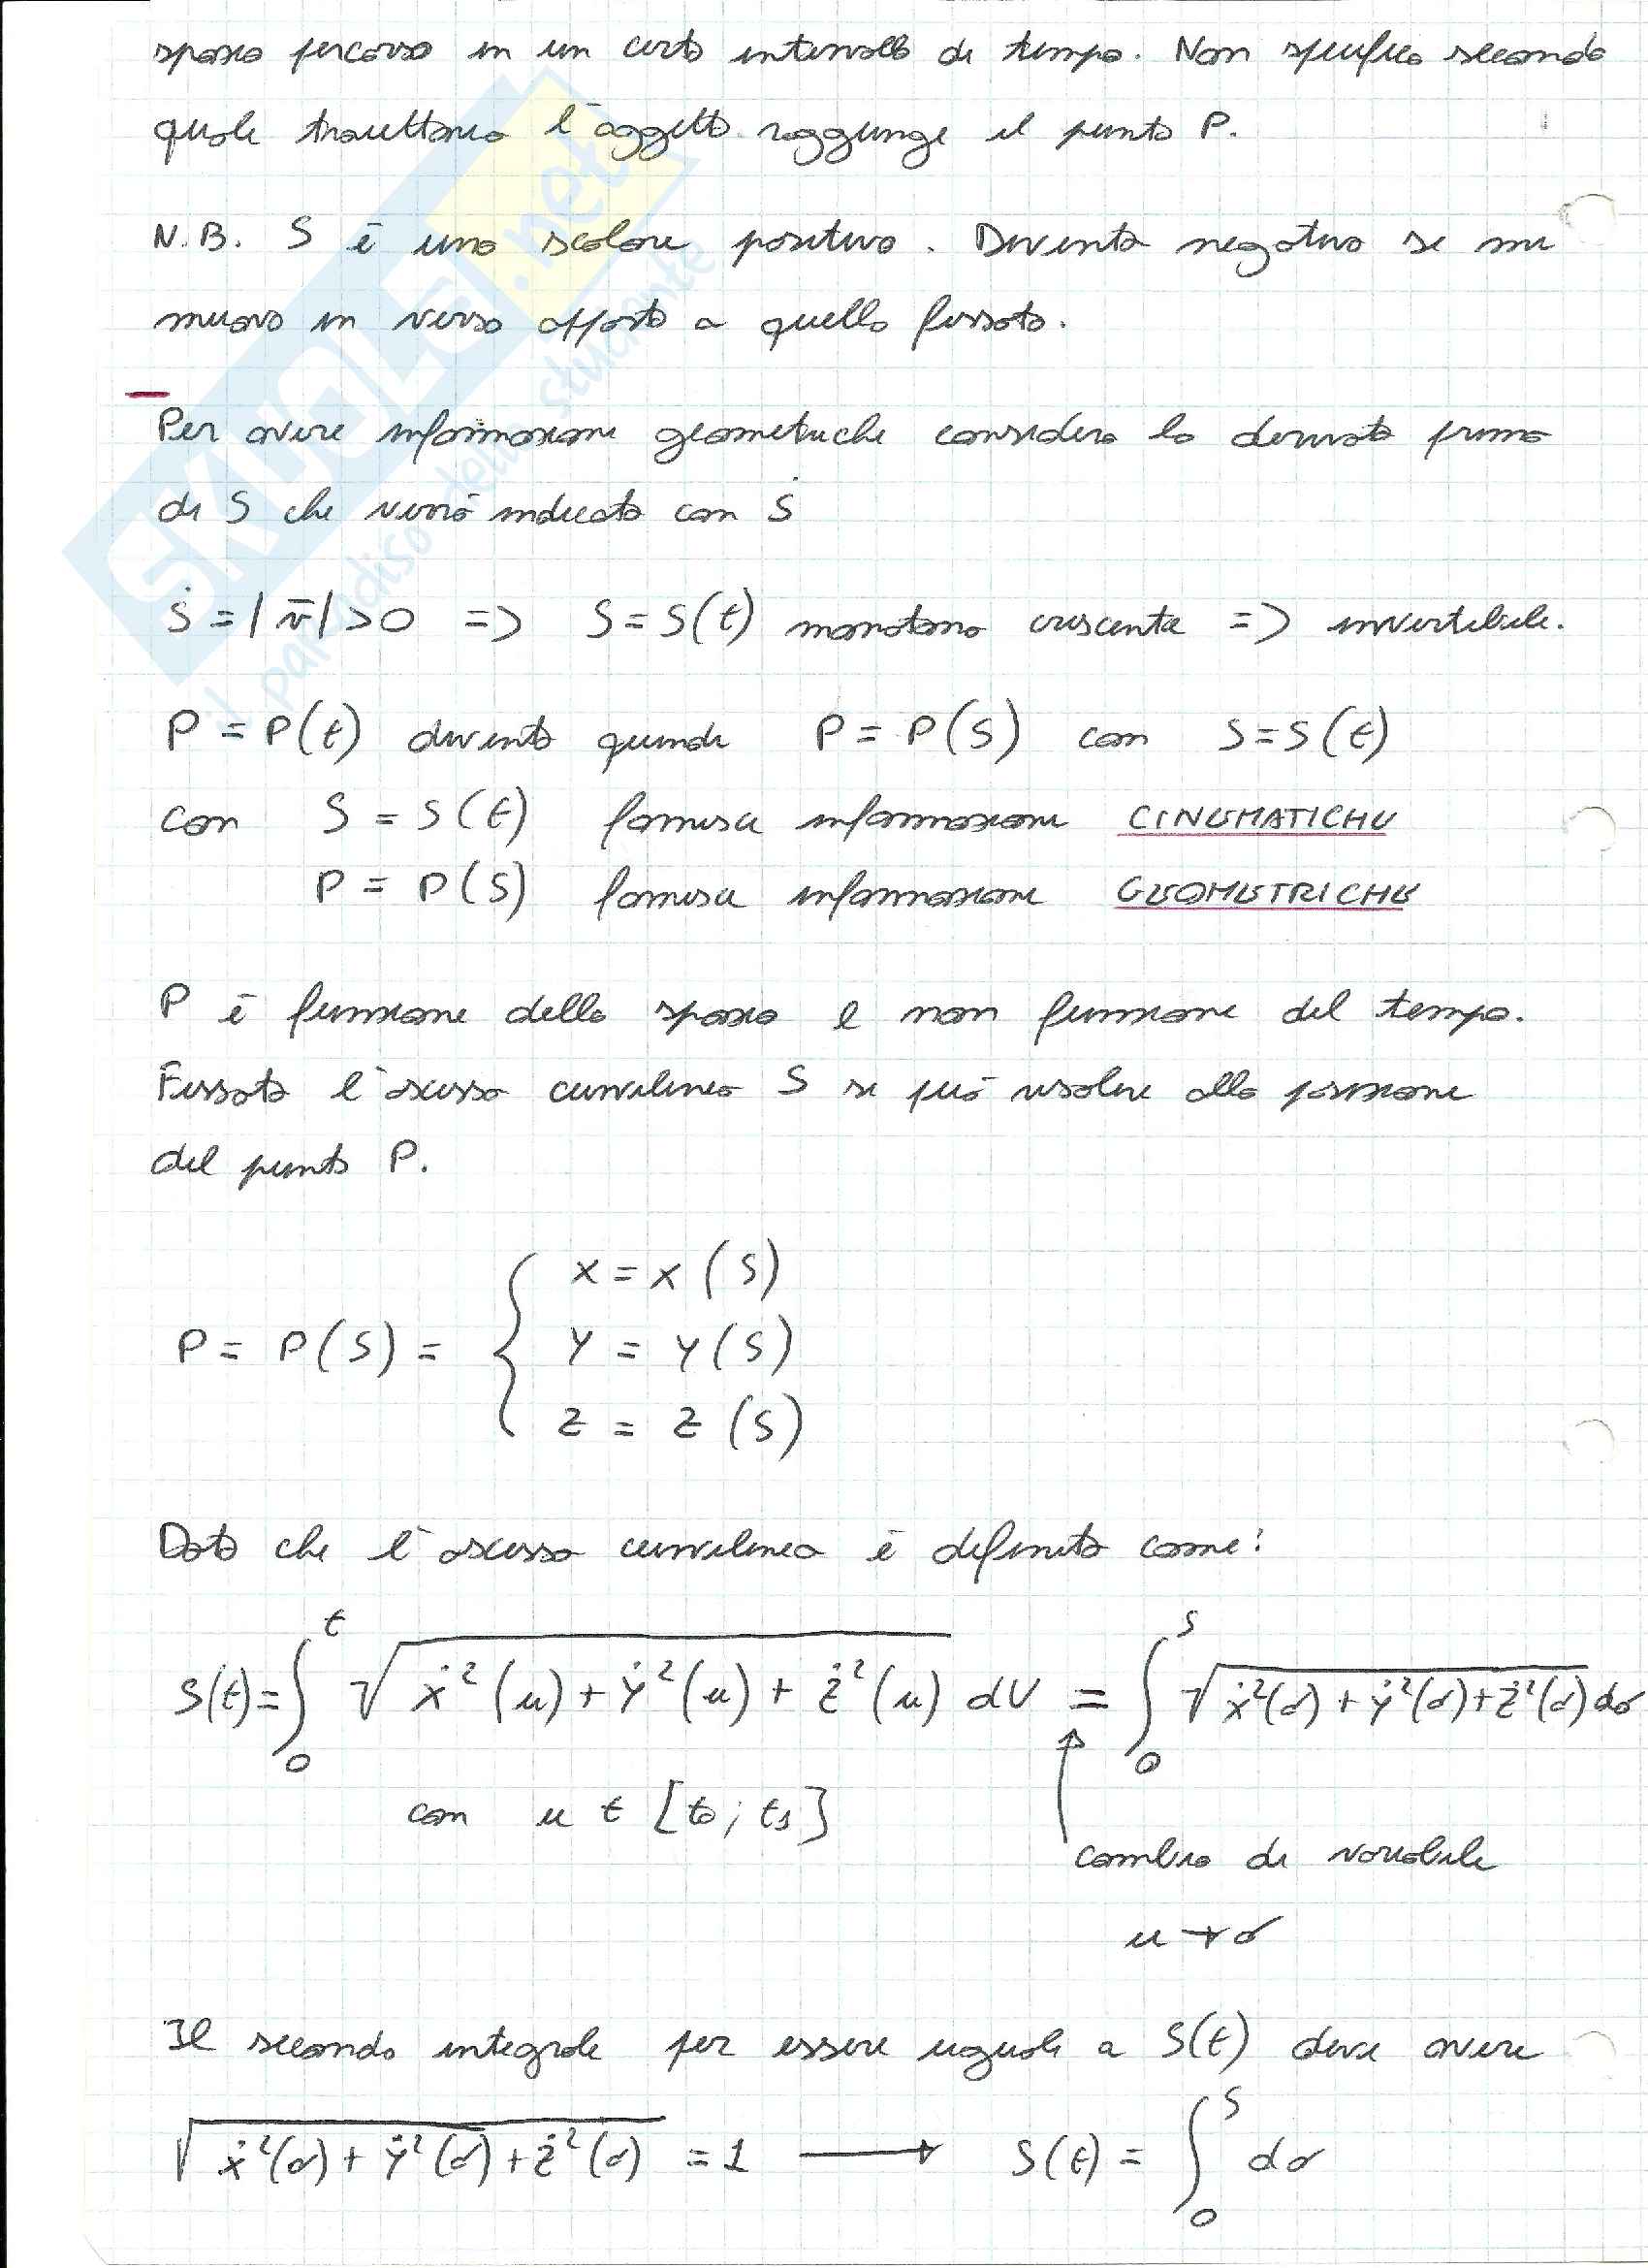 spazio percorso in un certo intervallo di tempo. Non specifica secondo
quale traiettoria l'oggetto raggiunge il punto P.
N.B. S è uno scalare positivo. Diventa negativo se mi
muovo in verso opposto a quello fissato.
Per avere informazioni geometriche considero la derivata prima
di S che verrà indicata con Ṡ
Ṡ = |v̄| > 0 => S = S(t) monotona crescente => invertibile.
P = P(t) diventa quindi P = P(S) con S = S(t)
con S = S(t) fornisce informazioni CINEMATICHE
P = P(S) fornisce informazioni GEOMETRICHE
P è funzione dello spazio e non funzione del tempo.
Fissata l'ascissa curvilinea S si può risalire alla posizione
del punto P.
x = x(S)
P = P(S) = { y = y(S)
z = z(S)
Dato che l'ascissa curvilinea è definita come:
S(t) = ∫₀ᵗ √(ẋ²(u) + ẏ²(u) + ż²(u)) dU = ∫₀ˢ √(ẋ²(σ) + ẏ²(σ) + ż²(σ)) dσ
con u ∈ [t₀; t₁]
cambio di variabile
u → σ
Il secondo integrale per essere uguale a S(t) deve avere
√(ẋ²(σ) + ẏ²(σ) + ż²(σ)) = 1 → S(t) = ∫₀ˢ dσ
SKUOLA.net
il paradiso dello studente